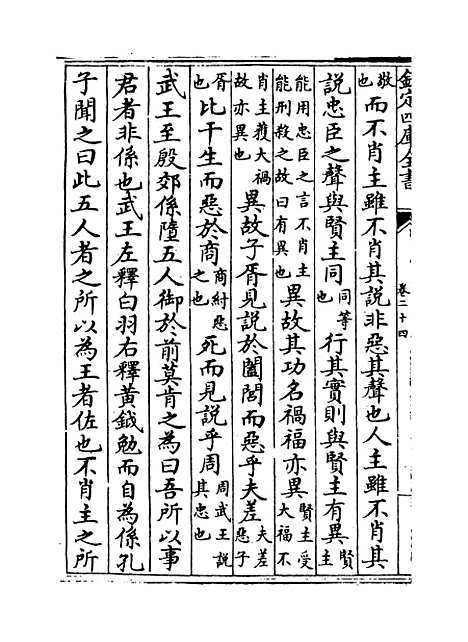 欽定四庫全書
卷二十四
敬也而不肖主雖不肖其說非惡其聲也人主雖不肖其
說忠臣之聲與賢主同同等也行其實則與賢主有異賢主
能用忠臣之言不肖主能刑殺之故曰有異也異故其功名禍福亦異賢主受大福不
肖主獲大禍故亦異也異故子胥見說於闔閭而惡乎夫差夫差惡子
胥也比干生而惡於商商紂惡之也死而見說乎周周武王說其忠也
武王至殷郊係墮五人御於前莫肯之為曰吾所以事
君者非係也武王左釋白羽右釋黃鉞勉而自為係孔
子聞之曰此五人者之所以為王者佐也不肖主之所